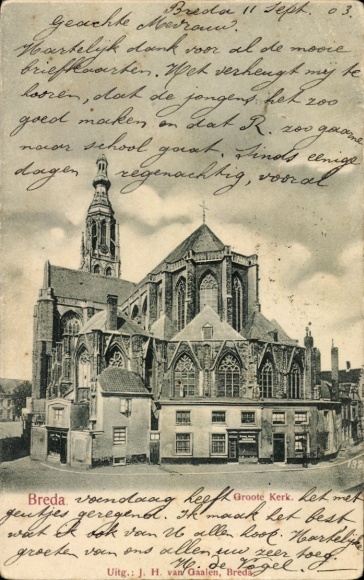 Breda 11 Sept. 03.
Geachte Mevrouw.
Hartelijk dank voor al de mooie
briefkaarten. Het verheugt mij te
hooren, dat de jongens het zoo
goed maken en dat R. zoo gaarne
naar school gaat. Sinds eenige
dagen regenachtig, vooral
Breda. vandaag heeft Groote Kerk. het met
geutjes geregend. Ik maak het best
wat ik ook van U allen hoop. Hartelijk
groeten van ons allen uw zeer toeg.
H. de Vogel.
Uitg.: J. H. van Gaalen, Breda.